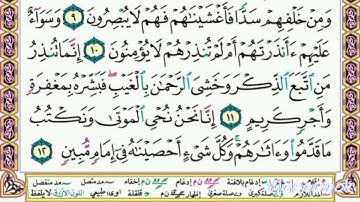 وَمِنْ خَلْفِهِمْ سَدًّا فَأَغْشَيْنَٰهُمْ فَهُمْ لَا يُبْصِرُونَ ٩ وَسَوَآءٌ
عَلَيْهِمْ ءَأَنذَرْتَهُمْ أَمْ لَمْ تُنذِرْهُمْ لَا يُؤْمِنُونَ ١٠ إِنَّمَا تُنذِرُ
مَنِ ٱتَّبَعَ ٱلذِّكْرَ وَخَشِىَ ٱلرَّحْمَٰنَ بِٱلْغَيْبِ فَبَشِّرْهُ بِمَغْفِرَةٍ
وَأَجْرٍ كَرِيمٍ ١١ إِنَّا نَحْنُ نُحْىِ ٱلْمَوْتَىٰ وَنَكْتُبُ
مَا قَدَّمُوا۟ وَءَاثَٰرَهُمْ وَكُلَّ شَىْءٍ أَحْصَيْنَٰهُ فِىٓ إِمَامٍ مُّبِينٍ ١٢